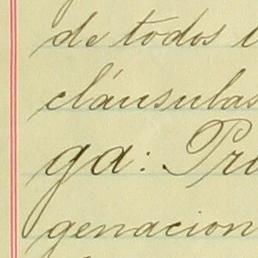 de todos
cláusulas
ga: Pri
genacion